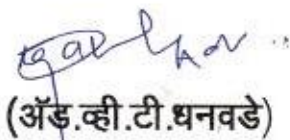 (ॲड.व्ही.टी.धनवडे)